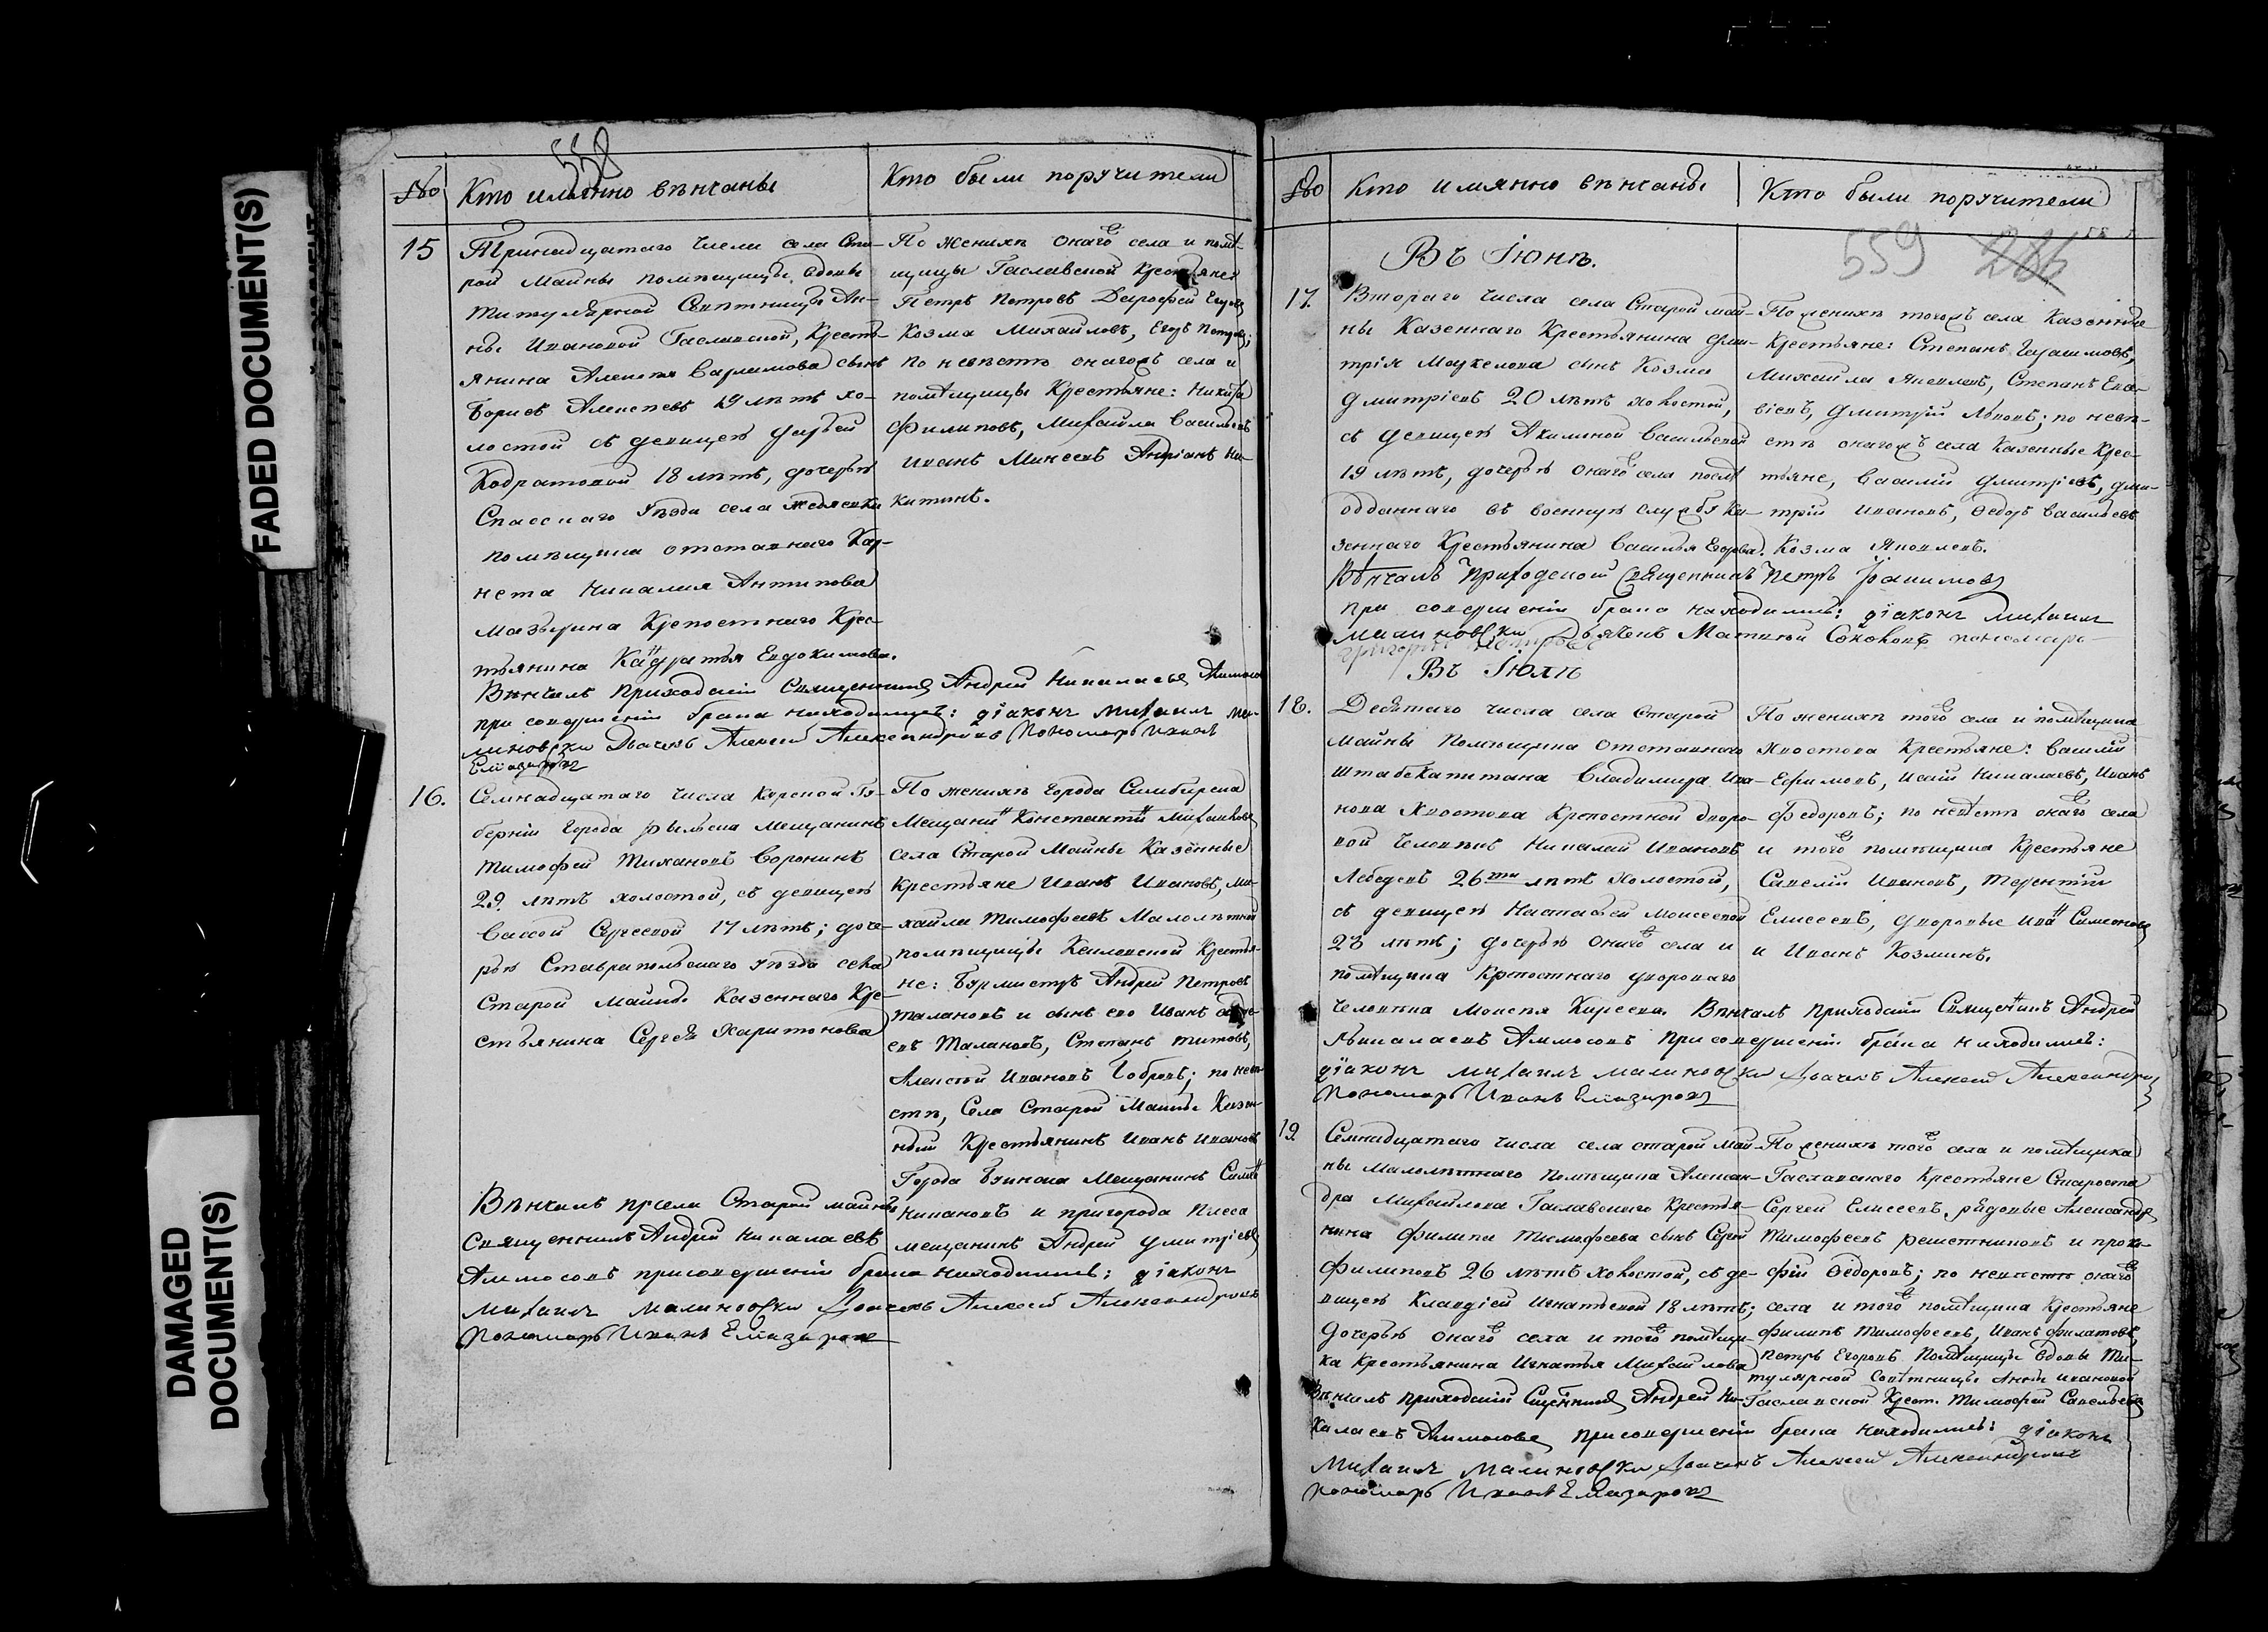 FADED DOCUMENT(S)
DAMAGED
DOCUMENT(S)
558
№ Кто имянно вѣнчаны Кто были поручители
15 Тринадцатаго числа села Ста-
рой Майны помѣщицы вдовы
Титулярной Совѣтницы Ан-
ны Ивановой Крестья-
янина Алексѣя сынъ
Борисъ Алексѣевъ 19 лѣтъ хо-
лостой съ девицею Дарьей
Кодратовой 18 лѣтъ, дочерью
Спасскаго уѣзда села
помѣщика отставнаго Кор-
нета Николая Антипова
Крепостнаго Крес-
тьянина Евдокимова.
По женихѣ онаго села и помѣ-
щицы Крестьяне:
Петръ Петровъ Дорофей
Козма Михайловъ, Егоръ Петровъ;
по невѣстѣ онагожъ села и
помѣщицы Крестьяне: Никита
Филиповъ, Михайла Васильевъ
Иванъ Андріанъ Ни-
китинъ.
Вѣнчалъ приходскій Священникъ Андрей Николаевъ Аммосовъ
при совершеніи брака находились: діаконъ Михаилъ Ма-
линовски Дьячекъ Алексей Александровъ Пономарь Иванъ
Елизаровъ
16. Семнадцатаго числа Курской Гу-
берніи города Рыльска мещанинъ
Тимофей Тихановъ Воронинъ
29 лѣтъ холостой, съ девицею
Вассой Сергеевой 17 лѣтъ; доче-
рью Ставрапольскаго уѣзда села
Старой Майны Казеннаго Кре-
стьянина Сергея Харитонова
По женихѣ города Симбирска
Мещанинъ Константинъ Михайловъ
села Старой Майны Казенные
Крестьяне Иванъ Ивановъ, Ми-
хайла Тимофеевъ Малолѣтной
помѣщицы Крестья-
не: Бурмистръ Андрей Петровъ
Талановъ и сынъ его Иванъ Андре-
евъ Талановъ, Степанъ Титовъ,
Алексѣй Ивановъ Бобровъ; по невѣ-
стѣ, Села Старой Майны Казен-
ный Крестьянинъ Иванъ Ивановъ
Города Мещанинъ
и пригорода
мещанинъ Андрей Дмитріевъ
Вѣнчалъ села Старой Майны
Священникъ Андрей Николаевъ
Аммосовъ при совершеніи брака находились: діаконъ
Михаилъ Малиновски Дьячекъ Алексей Александровъ
Пономарь Иванъ Елизаровъ
№ Кто имянно вѣнчаны Кто были поручители
559 286
Въ Іюнѣ.
17. Втораго числа села Старой Май-
ны Казеннаго Крестьянина Дми-
трія Маркелова сынъ Козма
Дмитріевъ 20 лѣтъ холостой,
съ девицею Акилиной Васильевой
19 лѣтъ, дочерью онаго села
отданнаго въ военную службу Ка-
зеннаго Крестьянина Василья Егорова.
По женихѣ тогожъ села Казенные
Крестьяне: Степанъ Герасимовъ,
Михайла Яковлевъ, Степанъ Ева-
віевъ, Дмитрій Львовъ; по невѣ-
стѣ онагожъ села Казенные Крес-
тьяне, Василій Дмитріевъ, Дми-
трій Ивановъ, Ѳедоръ Васильевъ
Козма Яковлевъ.
Вѣнчалъ приходской Священникъ Петръ Іоакимовъ
при совершеніи брака находились: діаконъ Михаилъ
Малиновски Дьячекъ Матвей Соколовъ пономарь
Григорій Петровъ
Въ Іюлѣ
18. Десятаго числа села Старой
Майны Помѣщика отставнаго
Штабскапитана Владимира Ива-
нова Хвостова Крепостной дворо-
вой человѣкъ Николай Ивановъ
Лебедевъ 26ти лѣтъ холостой,
съ девицею Настасьей Моисеевой
23 лѣтъ; дочерью онаго села и
помѣщика Крепостнаго двороваго
человѣка Моисея Киреева.
По женихѣ того села и помѣщика
Хвостова Крестьяне: Василій
Ефимовъ, Исай Николаевъ, Иванъ
Федоровъ; по невѣстѣ онаго села
и того помѣщика Крестьяне
Савелій Ивановъ, Терентій
Елисеевъ, дворовые Иванъ Симеоновъ
и Иванъ Козминъ.
Вѣнчалъ приходскій Священникъ Андрей
Николаевъ Аммосовъ при совершеніи брака находились:
діаконъ Михаилъ Малиновски Дьячекъ Алексей Александровъ
Пономарь Иванъ Елизаровъ
19. Семнадцатаго числа села Старой Май-
ны Малолѣтнаго Помѣщика Алексан-
дра Михайлова Крестья-
нина Филипа Тимофеева сынъ Сергей
Филиповъ 26 лѣтъ холостой, съ де-
вицею Клавдіей Игнатьевой 18 лѣтъ;
дочерью онаго села и того помѣщи-
ка Крестьянина Игнатья Михайлова
По женихѣ того села и помѣщика
Крестьяне Староста
Сергей Елисеевъ, рядовые Александръ
Тимофеевъ Решетниковъ и Проко-
фій Ѳедоровъ; по невѣстѣ онаго
села и того помѣщика Крестьяне
Филипъ Тимофеевъ, Иванъ Филатовъ,
Петръ Егоровъ Помѣщицы вдовы Ти-
тулярной Совѣтницы Анны Ивановой
Крест. Тимофей Савельевъ
Вѣнчалъ приходскій Священникъ Андрей Ни-
колаевъ Аммосовъ при совершеніи брака находились: діаконъ
Михаилъ Малиновски Дьячекъ Алексей Александровъ
Пономарь Иванъ Елизаровъ